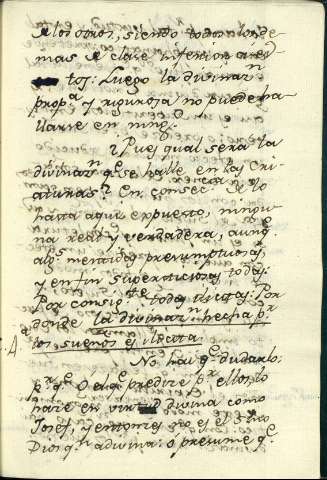 de los otros, siendo todos los de
mas de clase inferior a es
tos: Luego la divinaz.n
prop.a y rigurosa no puede ha
llarse en ning.o
¿Pues qual sera la
divinaz.n q.e se halle en las Cri
aturas? En consec.a de lo
hasta aqui expuesto, ningu
na real y verdadera, aunq.e
alg.s mentidas presumptuosas,
y en fin supersticiosas todas:
Por consig.te todas ilicitas: Por
donde la divinaz.n hecha p.r
A los sueños es ilicita.
No hai q.e dudarlo:
p.r q.e O el q.e predice p.r ellos, lo
hace en virtud divina como
Josef, y entonces no es el sino
Dios q.n adivina: o presume q.e